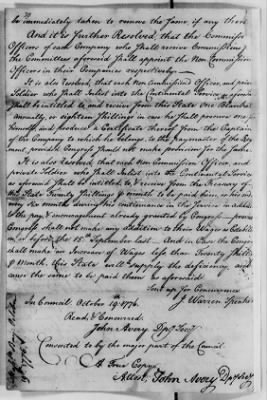 be immediately taken to remove the same if any there
And it is further Resolved, that the Commissn
Officers of each Company who shall receive Commissions
the Committees aforesaid shall appoint the Non Commission
Officers in their Companies respectively
It is also resolved that each Non Commissioned Officer, and private
Soldier who shall Inlist into the Continental Service as aforesaid
shall be intitled to and receive from this State one Blanket
annually, or eighteen Shillings in case he shall procure one for
himself and produce a Certificate thereof from the Captain
of the Company to which he belongs to the Paymaster of the
provided Congress shall not make provision for the same
It is also Resolved that each Non Commission Officer, and
private Soldier who shall Inlist into the Continental Service
as aforesaid shall be intitled to & receive from the Treasury of
this State Twenty Shillings month to be paid them
every six months during his continuance in the Service in addition
to the pay & encouragement already granted by Congress
Congress shall not make any addition to their Wages as Establish'd
on or before the 15th September last And in Case the Congress
shall make an increase of Wages less than Twenty Shill.
Month, this State will supply the deficiency and
cause the same to be paid them as aforesaid
Sent up for Concurrence
J Warren Speaker
In Council October 19th 1776
Read & Concurred
John Avery Dpy Secy
Consented to by the major part of the Council
A True Copy
Attest, John Avery Dpy Secy